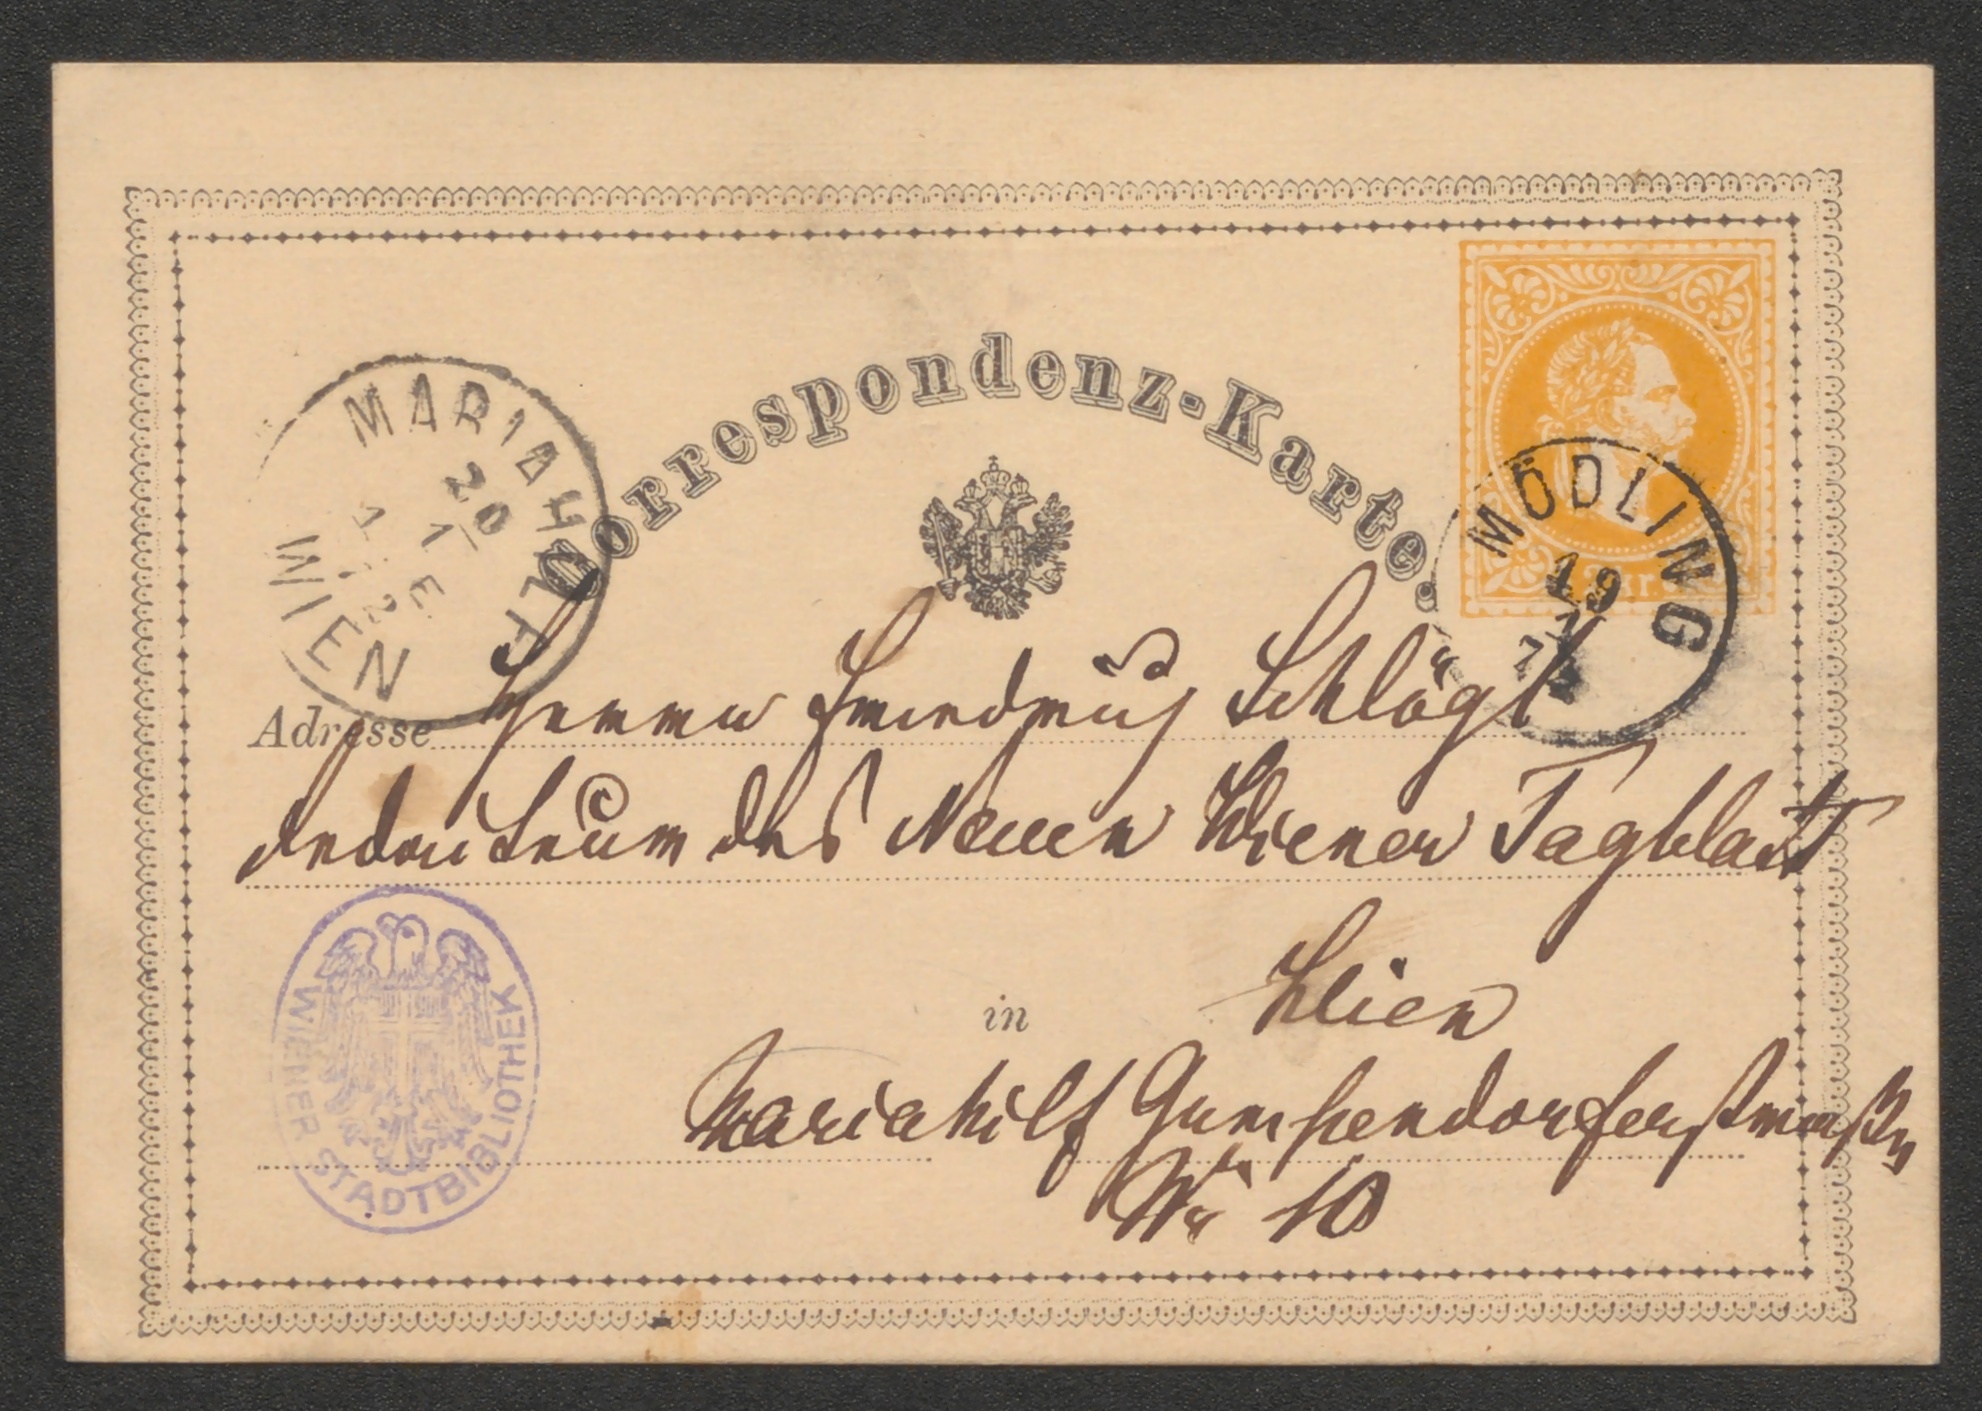 Correspondenz-Karte.
MARIAHILF
20
1
7 E
72
WIEN
MÖDLING
19
1
72
Adresse Herrn Friedrich Schlögl
Redacteur des Neuen Wiener Tagblatt
in Wien
Mariahilf Gumpendorferstraße
No 10
WIENER STADTBIBLIOTHEK